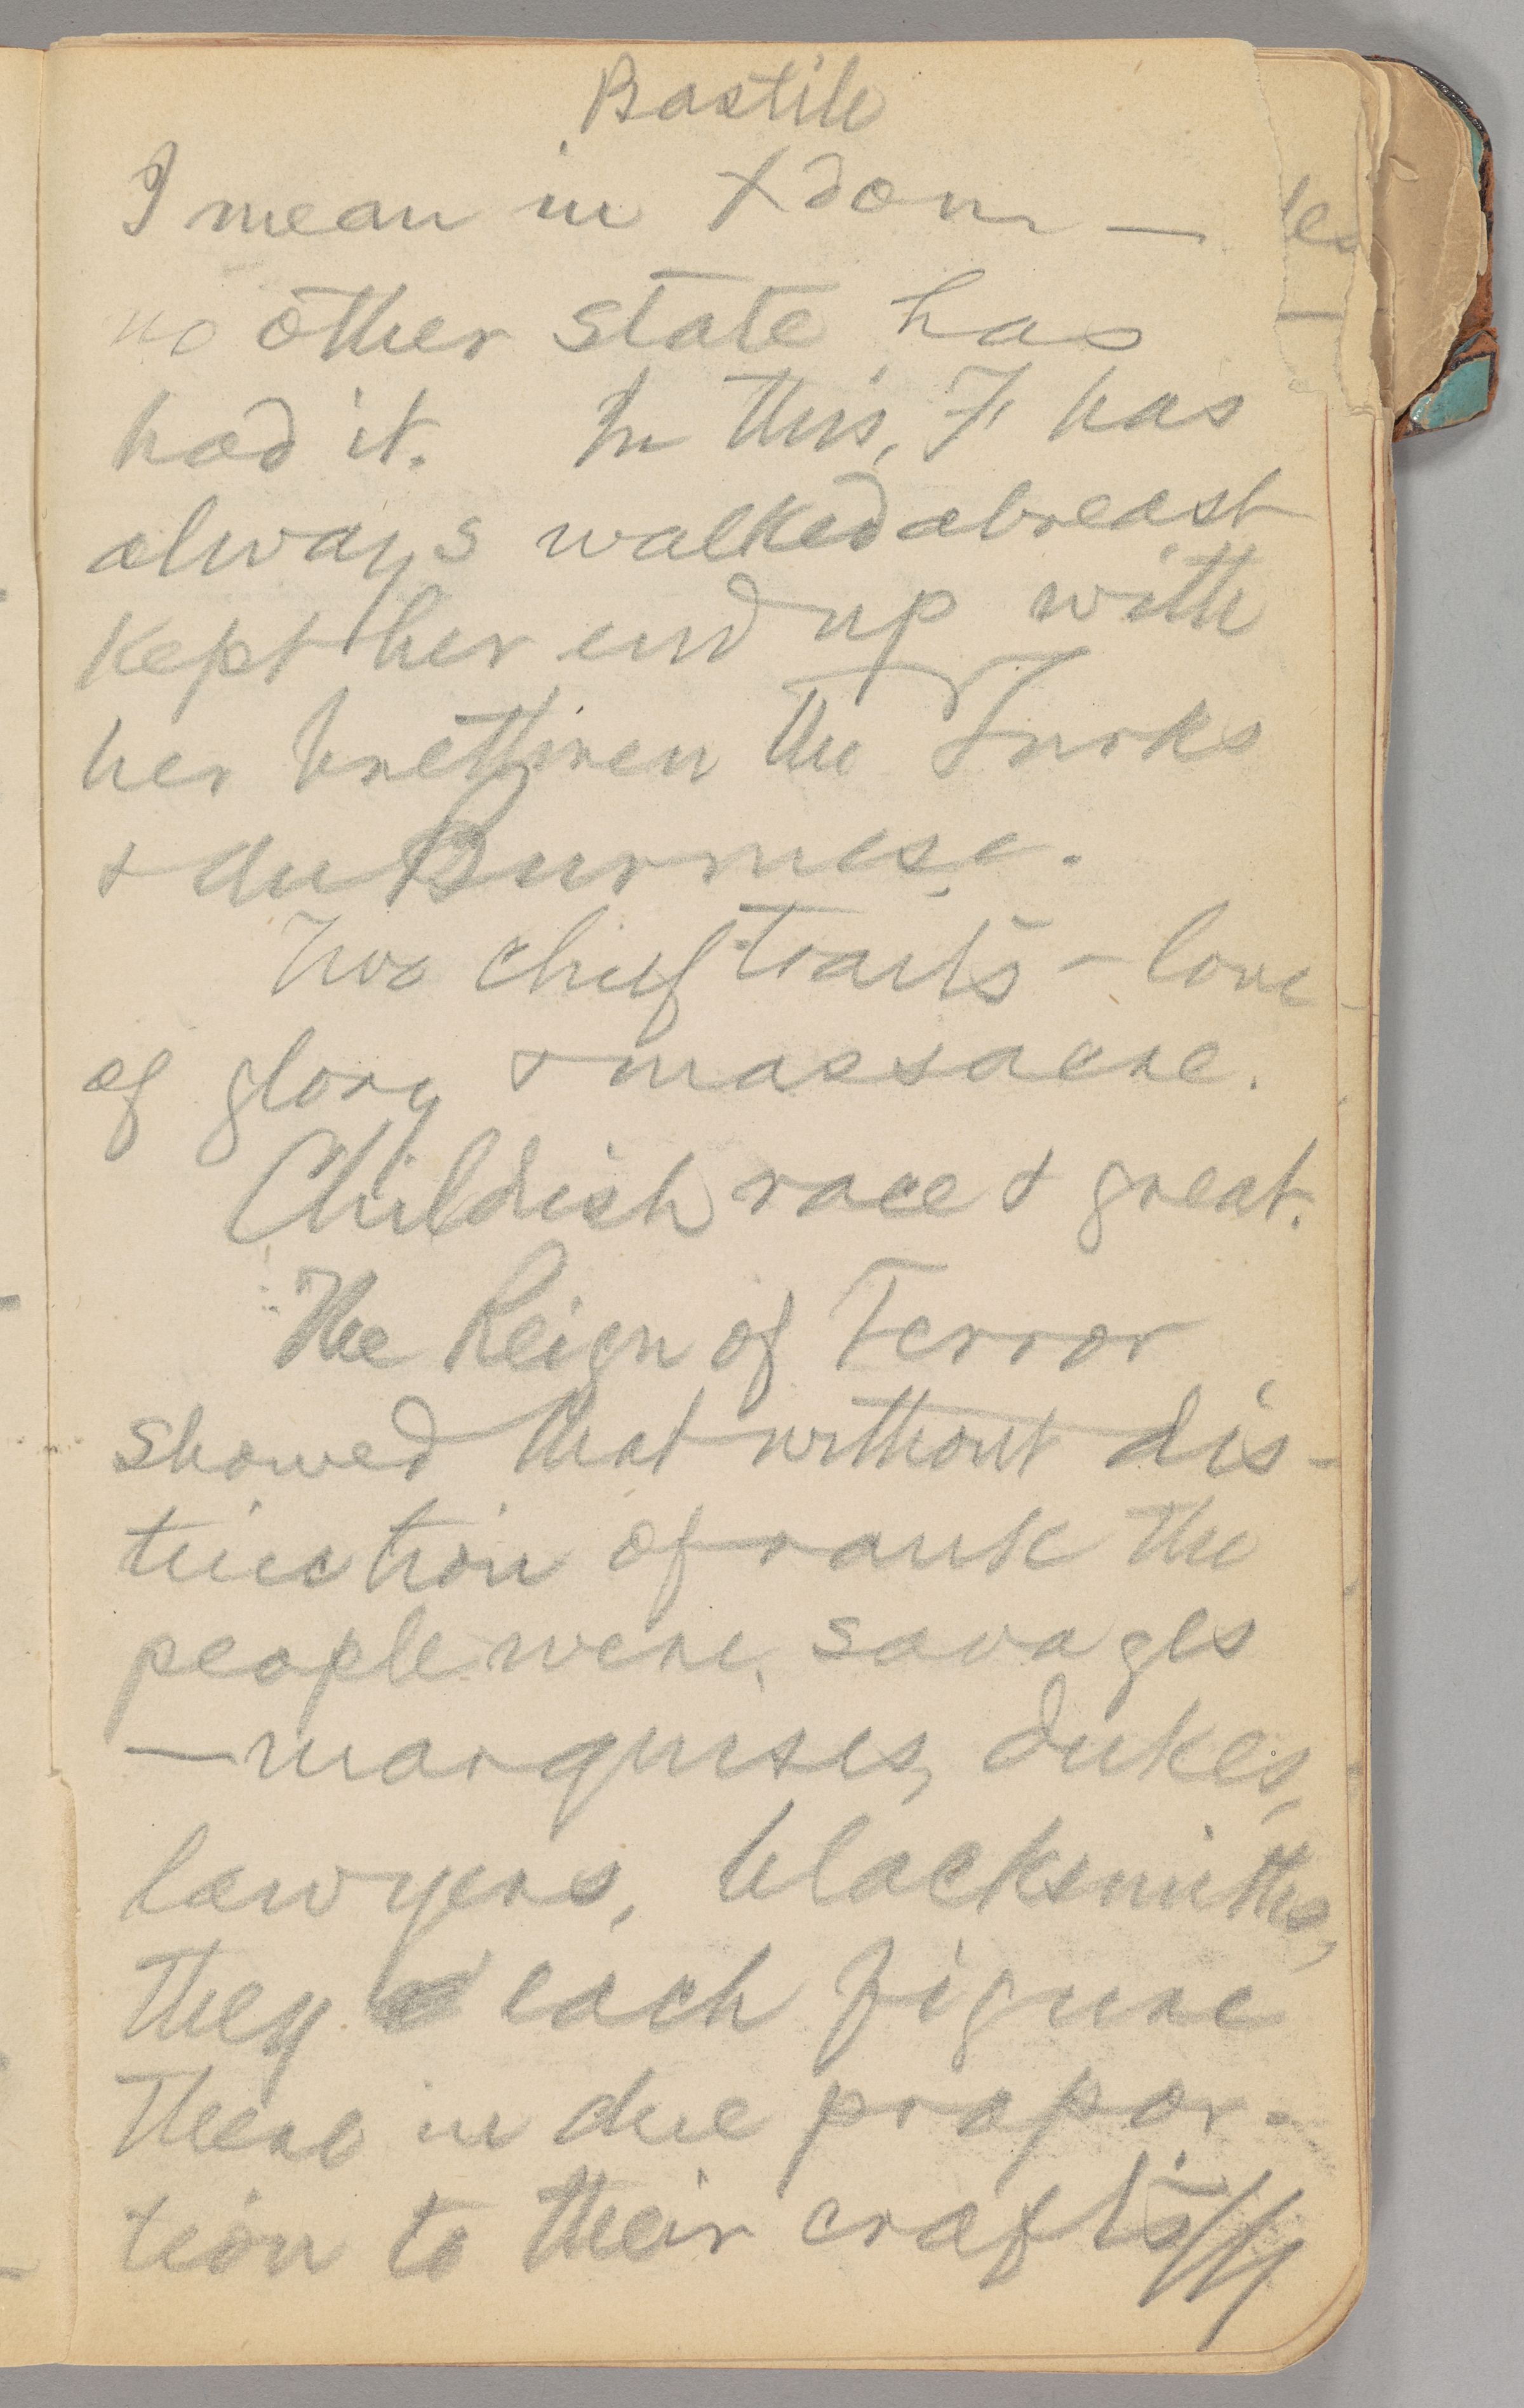 Bastile
I mean in Xdom —
no other state has
had it. In this, F. has
always walked abreast
kept her end up with
her brethren the Turks
& the Burmese.
Two chief traits — love
of glory & massacre.
Childish race & great.
The Reign of Terror
showed that without dis-
tinction of rank the
people were savages
— marquises, dukes,
lawyers, blacksmiths,
they each figure
there in due propor-
tion to their crafts